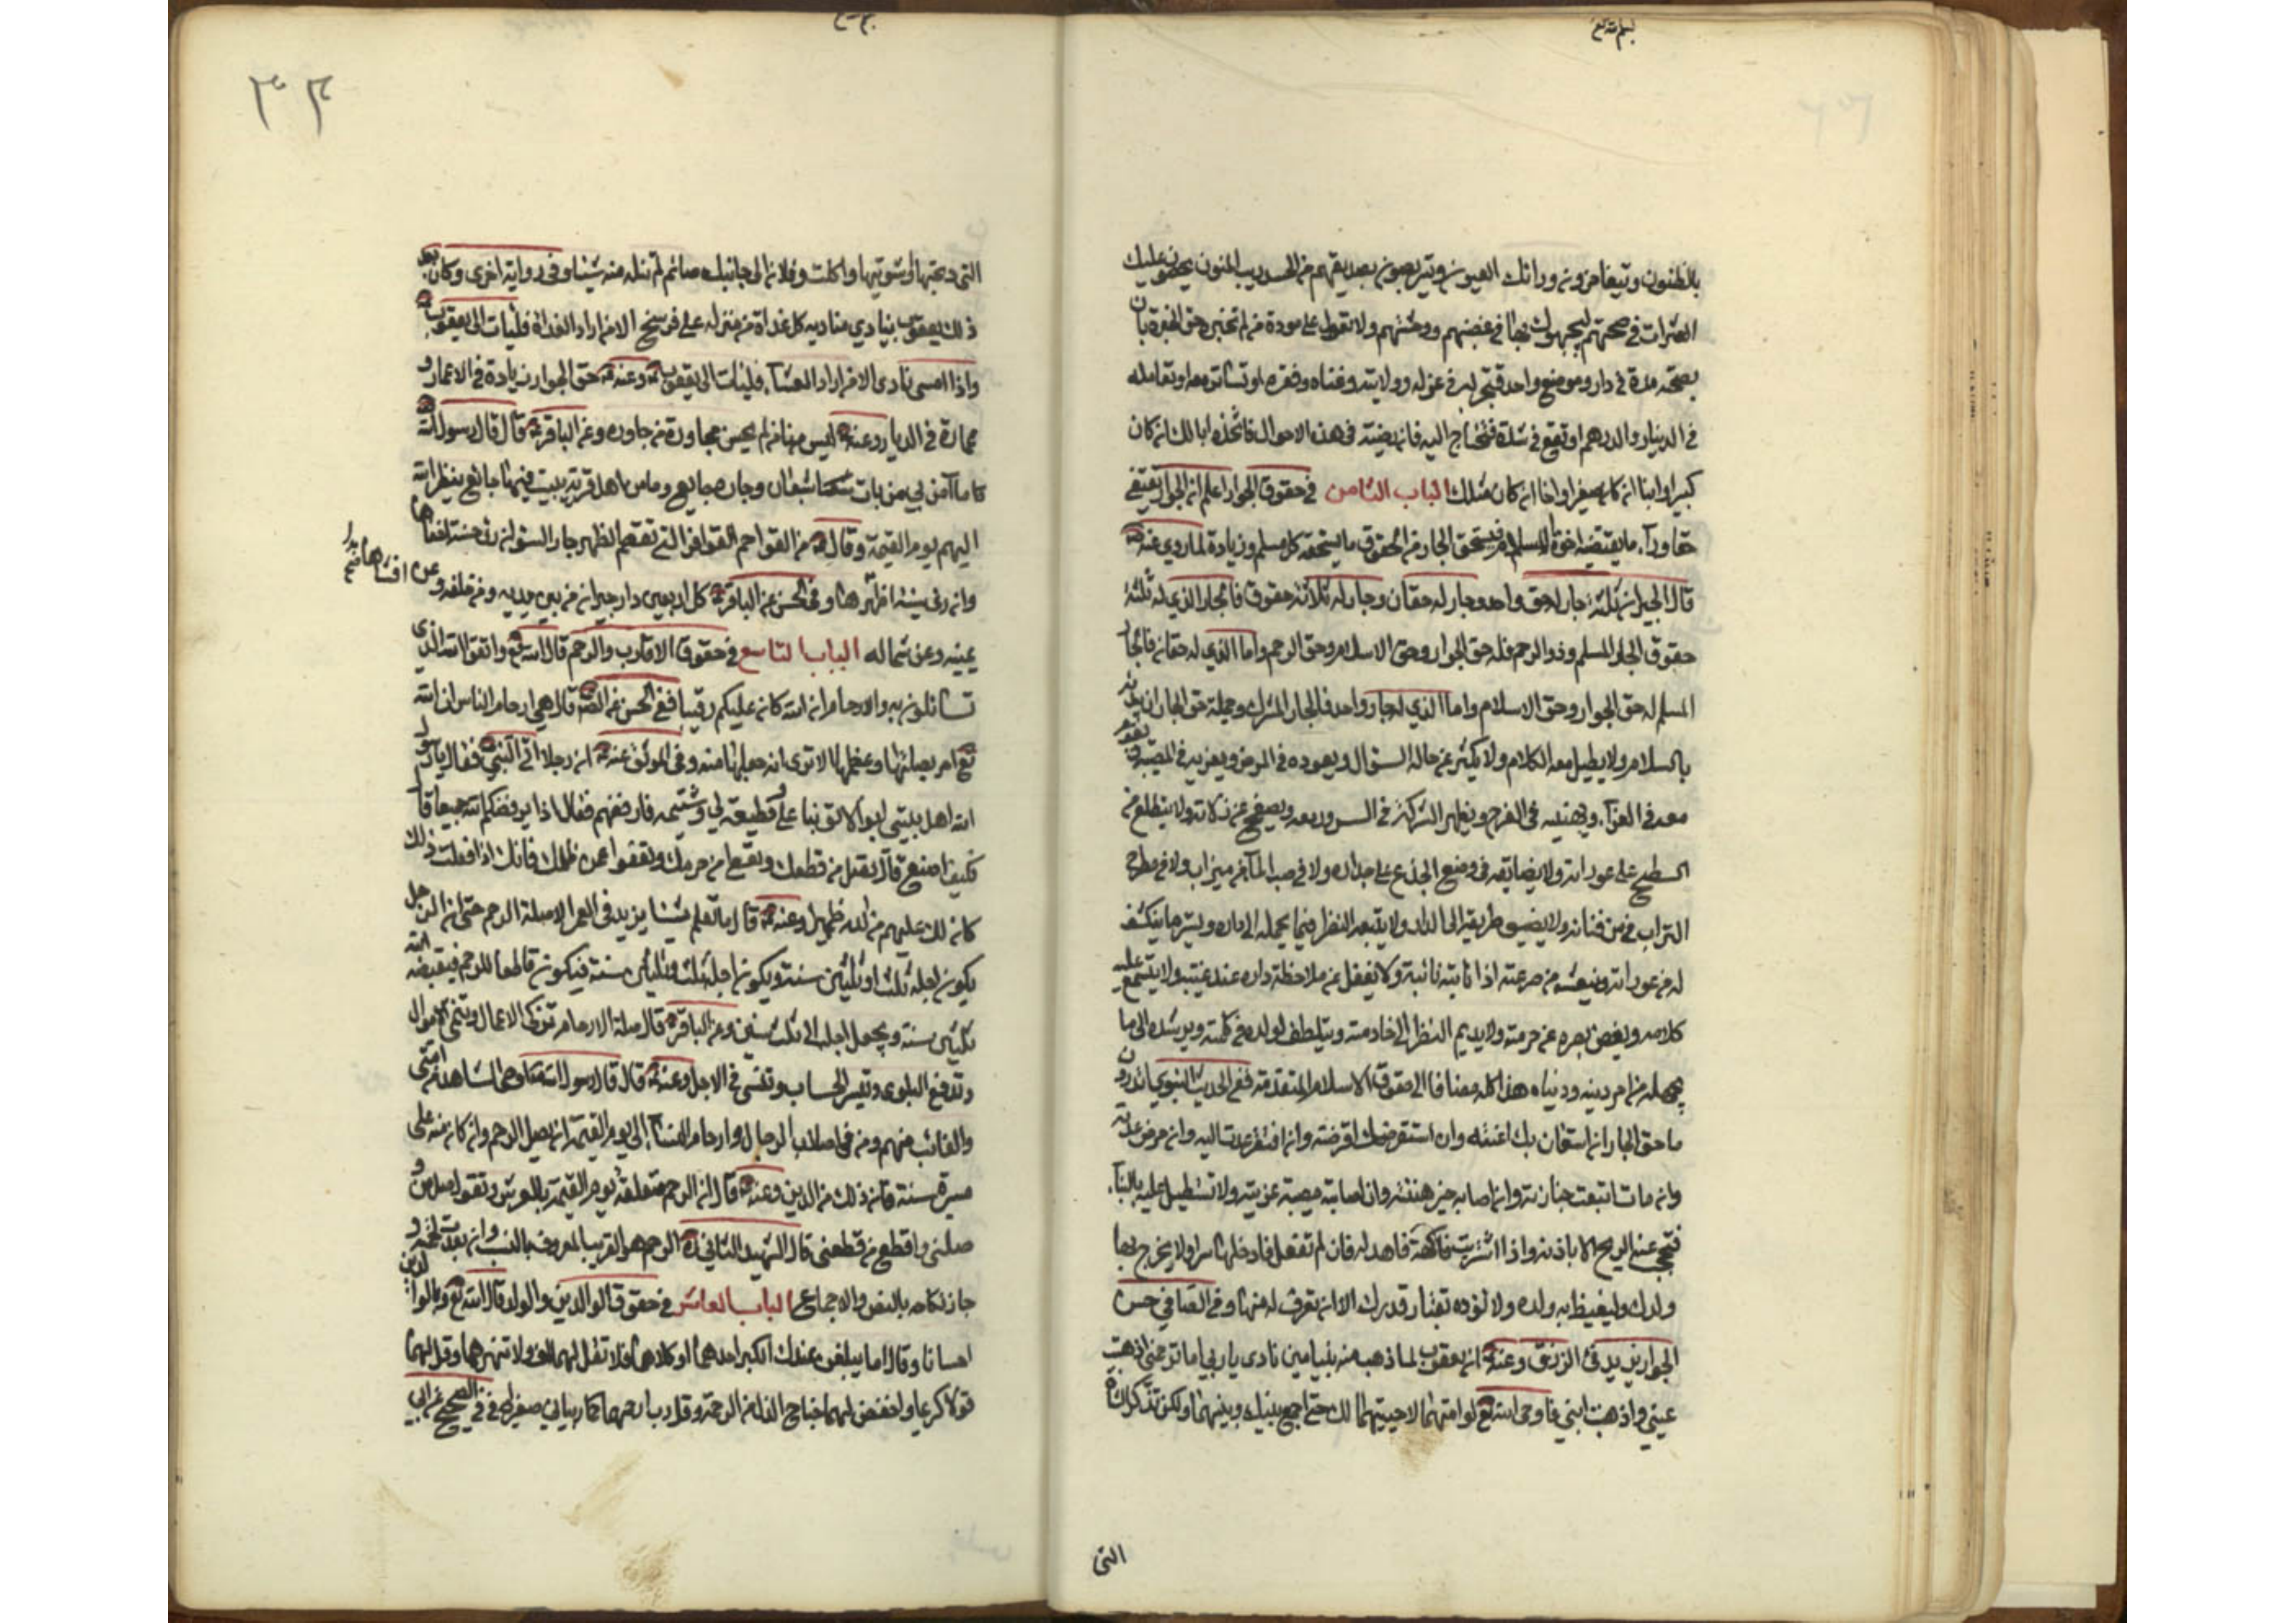 بالظنون ويتغامزون وراءك العيون ويتربصون بصديقهم من الحسد ريب المنون يحصون عليك
العثرات في صحبتهم ليجبهوك بها في غضبهم ووحشتهم ولا تعول على مودة من لم تختبره حق الخبرة بان
بصحبه مدة في دار وموضع واحد فتجربه في عزله وولايته وغناه وفقره او تسافر معه او تعامله
في الدينار والدرهم او تقع في شدة فتحتاج اليه فان رضيته في هذه الاحوال فاتخذه ابا لك ان كان
كبيرا وابنا ان كان صغيرا واخا ان كان مثلك الباب الثامن في حقوق الجوار اعلم ان الجوار يقتضي
حقا وراء ما يقتضيه اخوة الاسلام فيستحق الجار من الحقوق ما يستحقه كل مسلم وزيادة لما روي عنه
قال الجيران ثلثة جار له حق واحد وجار له حقان وجار له ثلاثة حقوق فالجار الذي له ثلثة
حقوق الجار المسلم وذو الرحم فله حق الجوار وحق الاسلام وحق الرحم واما الذي له حقان فالجار
المسلم له حق الجوار وحق الاسلام واما الذي له حق واحد فالجار المشرك وجملة حق الجار ان يبدئه
بالسلام ولا يطيل معه الكلام ولا يكثر عن حاله السؤال ويعوده في المرض ويعزيه في المصيبة ويقوم
معه في العزاء ويهنيه في الفرح ويظهر الشركة في السرور معه ويصفح عن زلاته ولا يتطلع من
السطح على عوراته ولا يضايقه في وضع الجذع على جداره ولا في صب الماء من ميزاب ولا في مطرح
التراب في من فنائه ولا يضيق طريقه الى الدار ولا يتبعه النظر فيما يحمله الى داره ويستر ما ينكشف
له من عوراته وينعشه من صرعته اذا نابته نائبة ولا يغفل عن ملاحظة داره عند غيبته ولا يتسمع عليه
كلامه ويغض بصره عن حرمته ولا يديم النظر الى خادمته ويتلطف لولده في كلمته ويرشده الى ما
يجهله من امر دينه ودنياه هذا كله مضافا الى حقوق الاسلام المتقدمة ففي الحديث النبوي اتدرون
ما حق الجار ان استعان بك اعنته وان استقرضك اقرضته وان افتقر عدت اليه وان مرض عدته
وان مات اتبعت جنازته وان اصابه خير هنئته وان اصابته مصيبة عزيته ولا تستطيل عليه بالبناء
فتحجب عنه الريح الا باذنه واذا اشتريت فاكهة فاهد له فان لم تفعل فادخلها سرا ولا يخرج بها
ولدك وليغيظ به ولده ولا تؤذه بقتار قدرك الا ان تغرف له منها وفي الصافي حسن
الجوار يزيد في الرزق وعنه ان يعقوب لما ذهب منه بنيامين نادى يا رب اما ترحمني اذهبت
عيني واذهبت ابني فاوحى الله تع لو امتهما لاحييتهما لك حتى اجمع بينك وبينهما ولكن تذكر الشاة
التي
٣٣
التي ذبحتها وشويتها واكلت وفلان الى جانبك صائم لم تنله منه شيئا وفي رواية اخرى وكان بعد
ذلك يعقوب ينادي مناديه كل غداة من منزله على فرسخ الا من اراد الغداء فليات الى يعقوب
واذا امسى نادى الا من اراد العشاء فليات الى يعقوب وعنه حق الجوار زيادة في الاعمار و
عمارة في الديار وعنه ليس منا من لم يحسن مجاورة من جاوره وعن الباقر قال قال رسول الله
ما آمن بي من بات شبعان وجاره جايع وما من اهل قرية يبيت فيها جائع ينظر الله
اليهم يوم القيمة وقال من القواصم الفواقر التي تقصم الظهر جار السوء ان راى حسنة اخفاها
وان راى سيئة اظهرها وفي الحسن عن الباقر كل اربعين دار جيران من بين يديه ومن خلفه وعن
يمينه وعن شماله الباب التاسع في حقوق الاقارب والرحم قال الله تع واتقوا الله الذي
تسائلون به والارحام ان الله كان عليكم رقيبا ففي الحسن عن الصادق قال هي ارحام الناس ان الله
تع امر بصلتها وعظمها الا ترى انه جعلها منه وفي الموثق عنه ان رجلا اتى النبي فقال يا رسول
الله اهل بيتي ابوا الا توثبا علي وقطيعة لي وشتيمة فارفضهم فقال اذا يرفضكم الله جميعا قال
فكيف اصنع قال تصل من قطعك وتعطي من حرمك وتعفوا عمن ظلمك فانك اذا فعلت ذلك
كان لك عليهم من الله ظهير وعنه قال ما نعلم شيئا يزيد في العمر الا صلة الرحم حتى ان الرجل
يكون اجله ثلث او ثلثين سنة ويكون اجله ثلث وثلثين سنة فيكون قاطعا للرحم فينقصه الله
ثلثين سنة ويجعل اجله الى ثلث سنين وعن الباقر قال صلة الارحام تزكي الاعمال وتنمي الاموال
وتدفع البلوى وتيسر الحساب وتنسئ في الاجل وعنه قال قال رسول الله اوصى الشاهد من امتي
والغائب منهم ومن في اصلاب الرجال وارحام النساء الى يوم القيمة ان يصل الرحم وان كان منه على
مسيرة سنة فان ذلك من الدين وعنه قال ان الرحم متعلقة يوم القيمة بالعرش وتقول صل من
صلني واقطع من قطعني قال الشهيد الثاني ره الرحم هو القريب المعروف بالنسب وان بعدت لحمته و
جاز نكاحه بالنص والاجماع الباب العاشر في حقوق الوالدين والولد قال الله تع وبالوالدين
احسانا وقال اما يبلغن عندك الكبر احدهما او كلاهما فلا تقل لهما اف ولا تنهرهما وقل لهما
قولا كريما واخفض لهما جناح الذل من الرحمة وقل رب ارحمهما كما ربياني صغيرا ففي الصحيح عن ابي